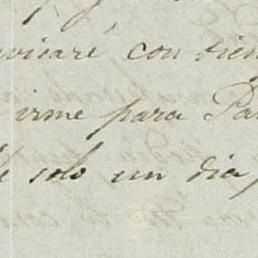 avisaré con tiem
irme para Pa
solo un dia,